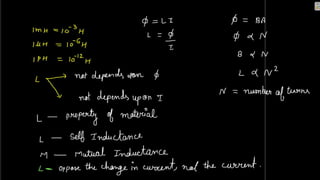 1mH = 10⁻³ H
1μH = 10⁻⁶ H
1PH = 10⁻¹² H
φ = LI
L = φ/I
φ = BA
φ ∝ N
B ∝ N
L ∝ N²
N = number of turns
L → not depends upon φ
→ not depends upon I
L — property of material
L — Self Inductance
M — Mutual Inductance
L — oppose the change in current, not the current.